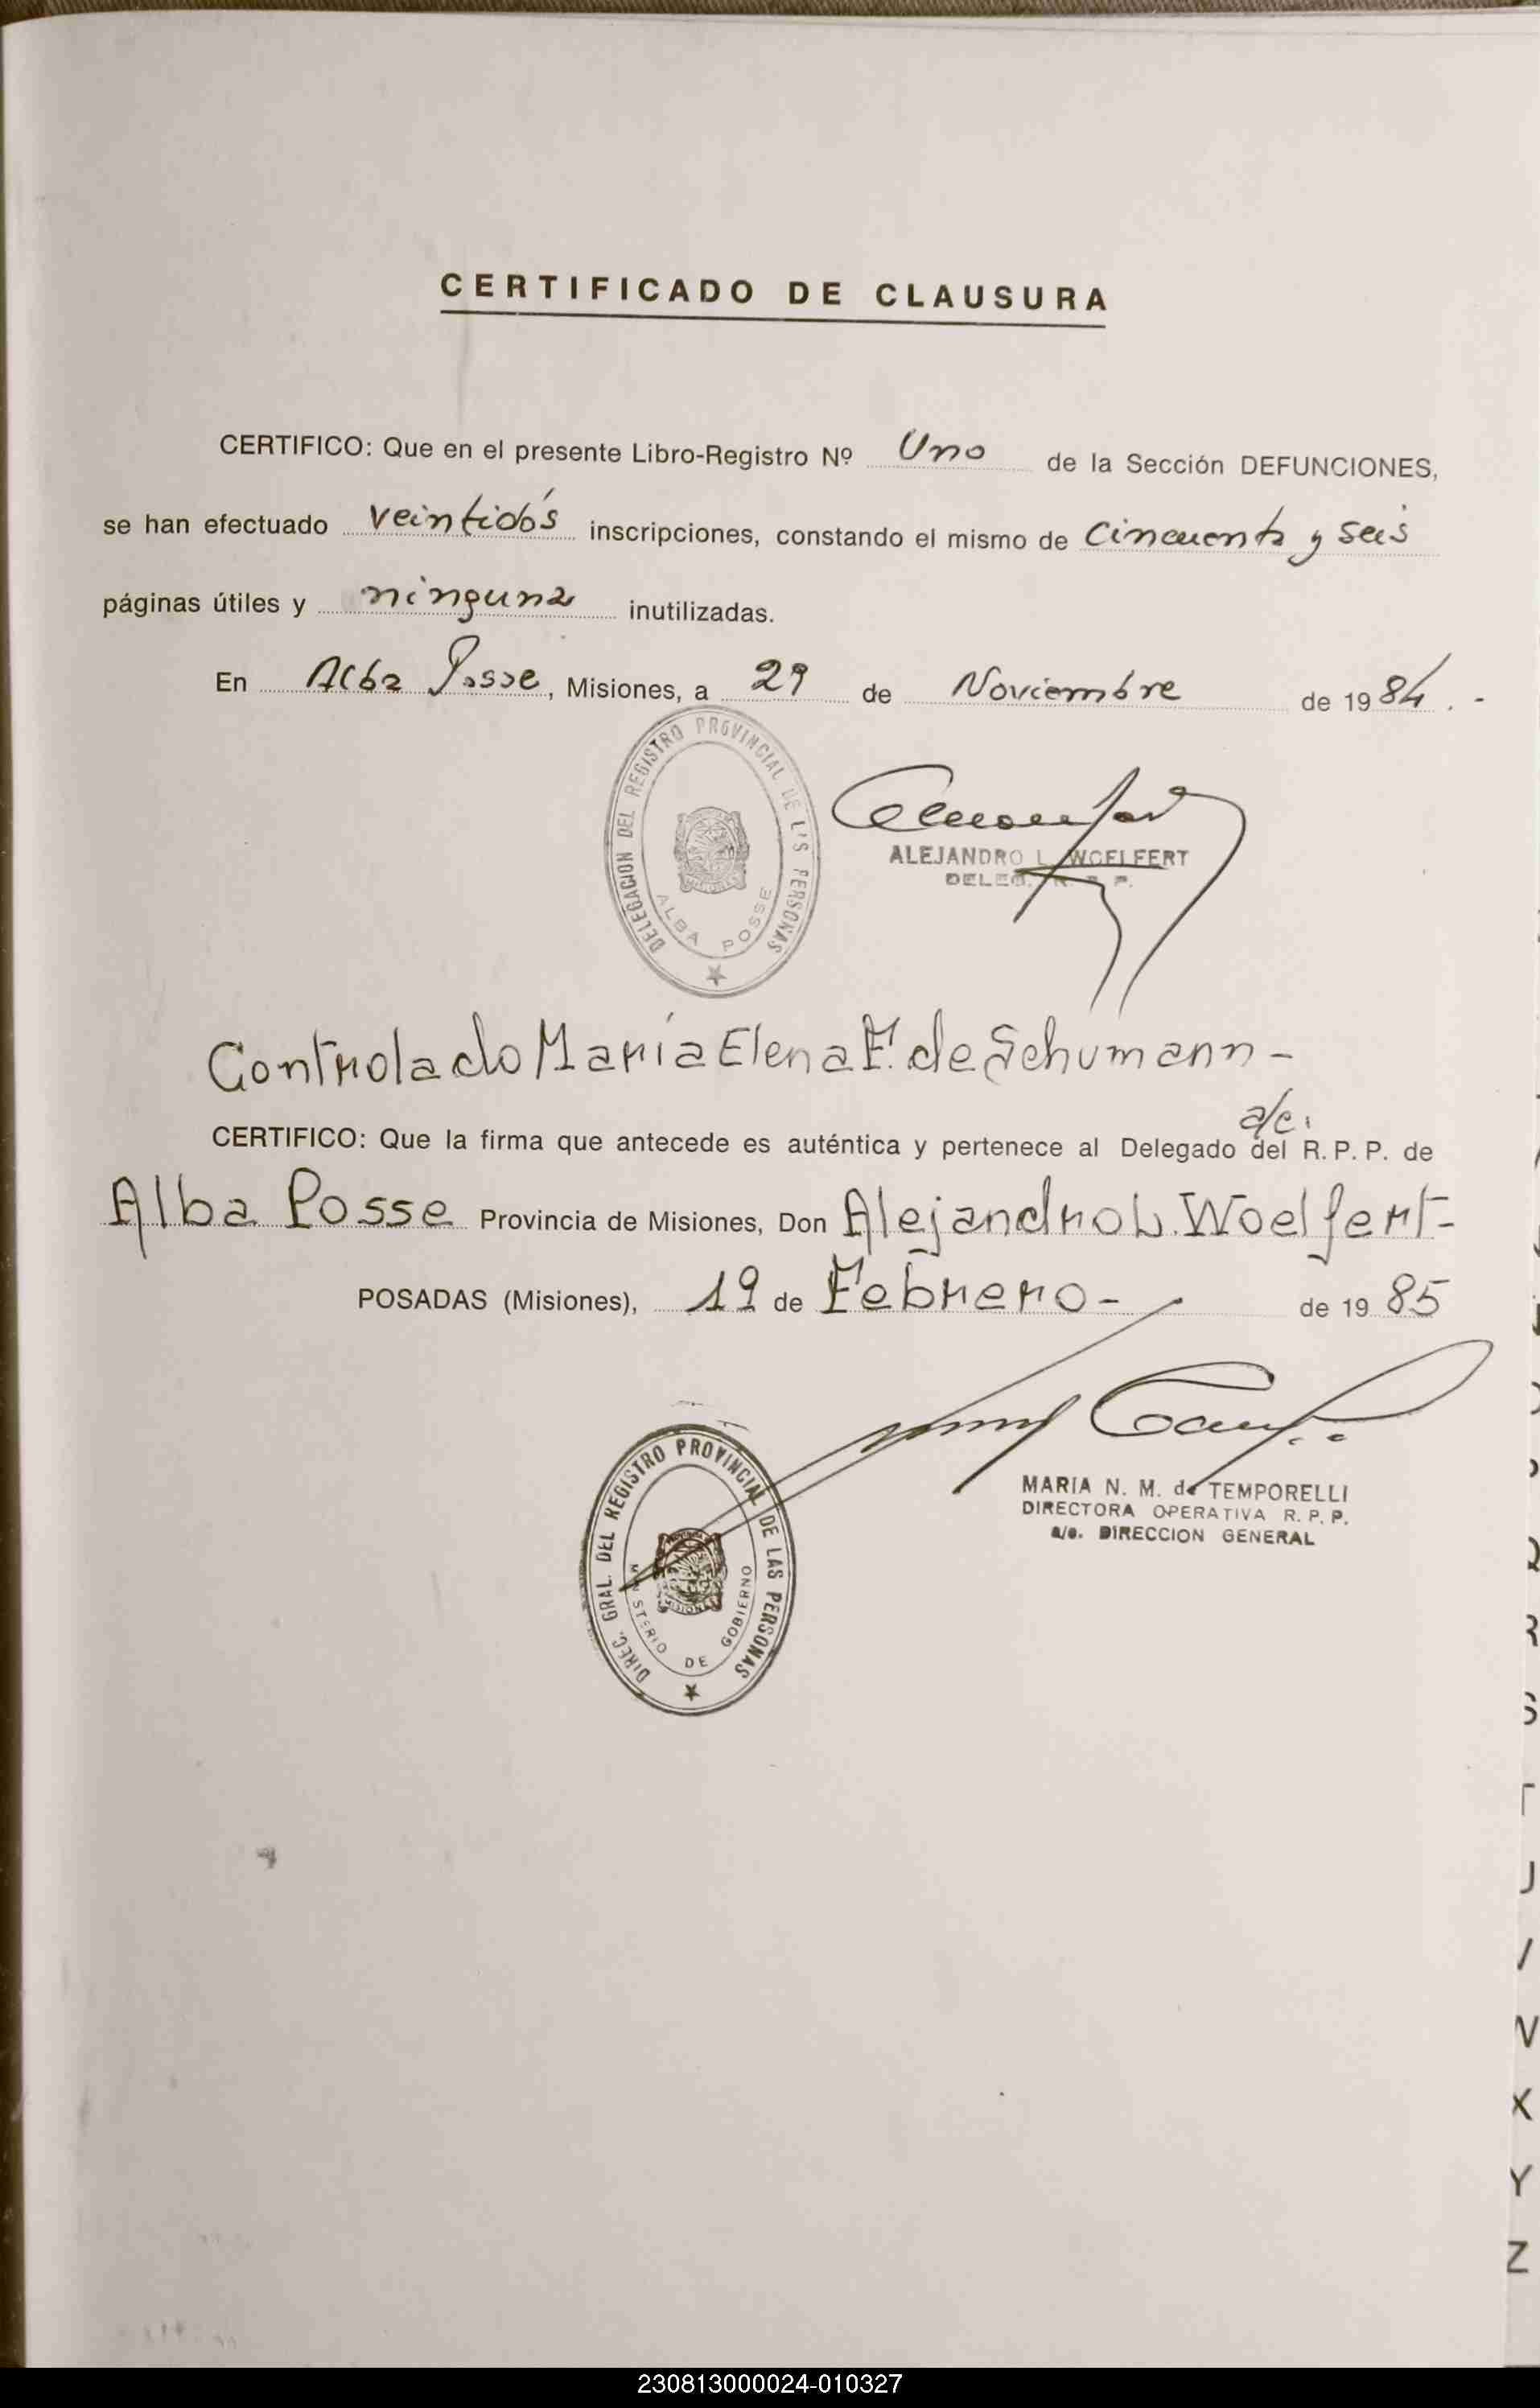 CERTIFICADO DE CLAUSURA
CERTIFICO: Que en el presente Libro-Registro Nº Uno de la Sección DEFUNCIONES,
se han efectuado veintidós inscripciones, constando el mismo de Cincuenta y seis
páginas útiles y ninguna inutilizadas.
En Alba Posse, Misiones, a 29 de Noviembre de 1984.-
DELEGACION DEL REGISTRO PROVINCIAL DE L'S PERSONAS
ALBA POSSE
ALEJANDRO L. WOELFERT
DELEG. R. P. P.
Controlado María Elena F. de Schumann-
a/c.
CERTIFICO: Que la firma que antecede es auténtica y pertenece al Delegado del R. P. P. de
Alba Posse Provincia de Misiones, Don Alejandro L. Woelfert-
POSADAS (Misiones), 19 de Febrero- de 1985
DIREC. GRAL. DEL REGISTRO PROVINCIAL DE LAS PERSONAS
MINISTERIO DE GOBIERNO
MISIONES
MARIA N. M. de TEMPORELLI
DIRECTORA OPERATIVA R. P. P.
a/c. DIRECCION GENERAL
R
S
T
U
V
X
Y
Z
230813000024-010327